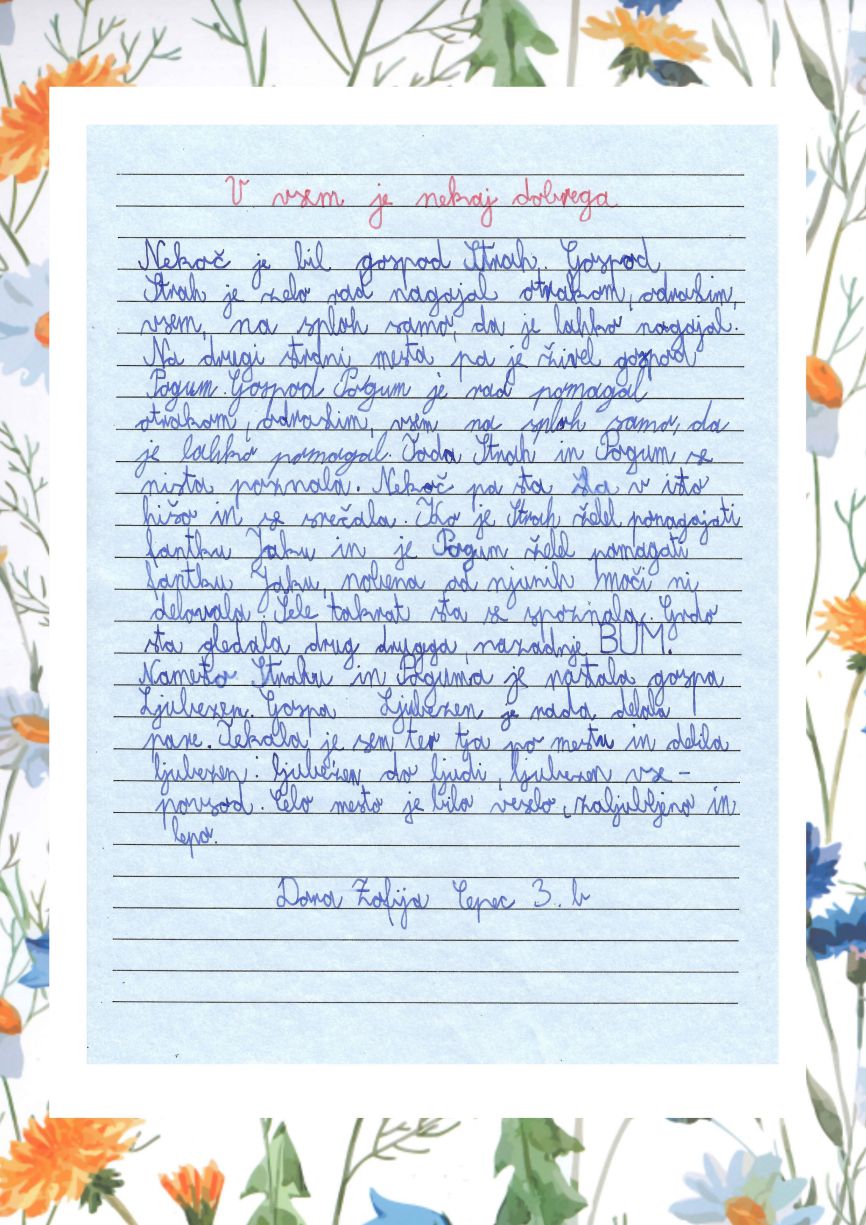 V vsem je nekaj dobrega.
Nekoč je bil gospod Strah. Gospod
Strah je zelo rad nagajal otrokom, odraslim,
vsem, na sploh samo, da je lahko nagajal.
Na drugi strani mesta pa je živel gospod
Pogum. Gospod Pogum je rad pomagal
otrokom, odraslim, vsem na sploh samo, da
je lahko pomagal. Toda Strah in Pogum se
nista poznala. Nekoč pa sta šla v isto
hišo in se srečala. Ko je Strah želel ponagajati
fantku Jaku in je Pogum želel pomagati
fantku Jaku, nobena od njunih moči ni
delovala. Šele takrat sta se spoznala. Grdo
sta gledala drug drugega, nazadnje BUM.
Namesto Strahu in Poguma je nastala gospa
Ljubezen. Gospa Ljubezen je rada delala
pare. Tekala je sem ter tja po mestu in delila
ljubezen: ljubezen do ljudi, ljubezen vse-
povsod. Celo mesto je bilo veselo, zaljubljeno in
lepo.
Zofija Lepec 3. b